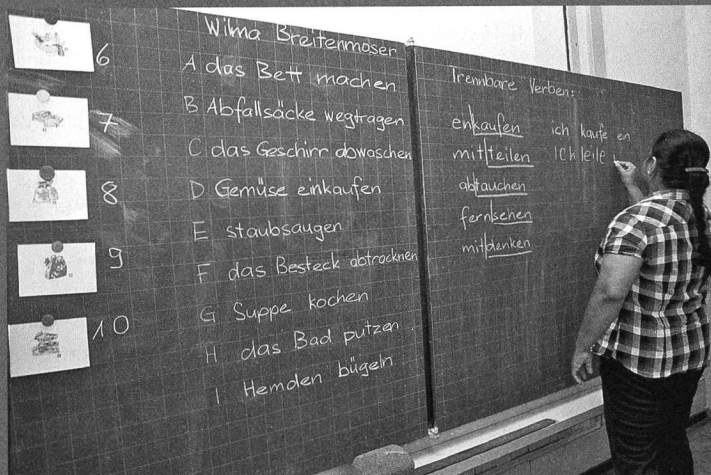 6
7
8
9
10
Wilma Breitenmoser
A das Bett machen
B Abfallsäcke wegtragen
C das Geschirr abwaschen
D Gemüse einkaufen
E staubsaugen
F das Besteck abtrocknen
G Suppe kochen
H das Bad putzen
I Hemden bügeln
Trennbare Verben:
enkaufen ich kaufe en
mitteilen Ich leile
abtauchen
fernsehen
mitdenken